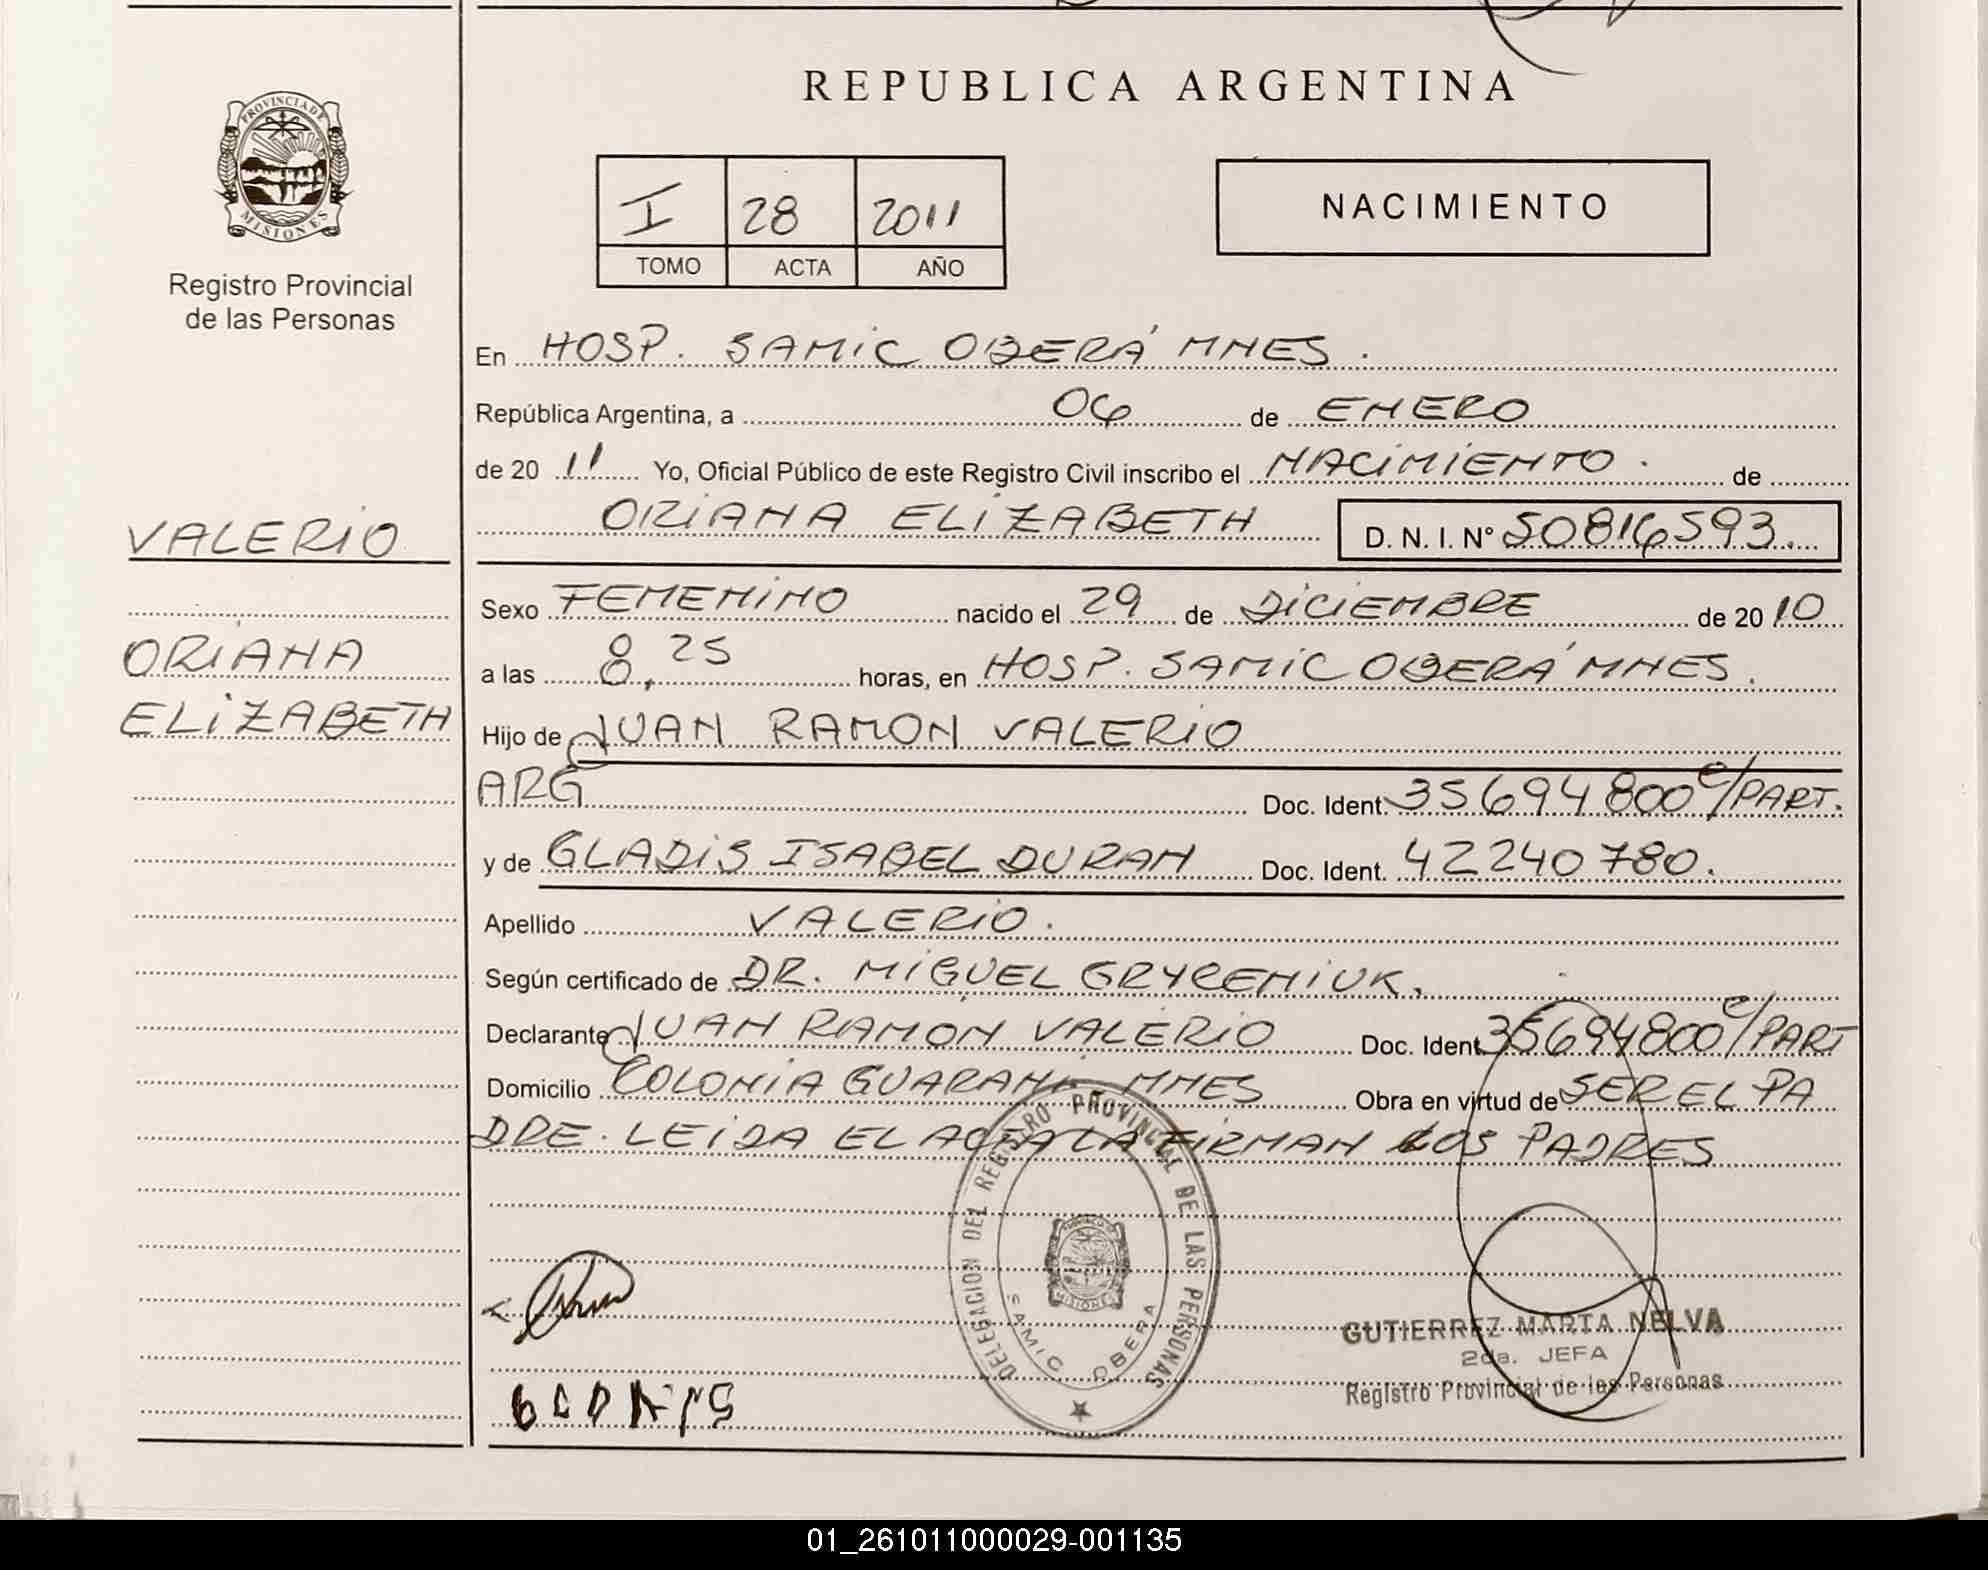 REPUBLICA ARGENTINA
PROVINCIA DE
MISIONES
Registro Provincial
de las Personas
I 28 2011
TOMO ACTA AÑO
NACIMIENTO
En HOSP. SAMIC OBERÁ MNES.
República Argentina, a 06 de ENERO
de 20 11 Yo, Oficial Público de este Registro Civil inscribo el NACIMIENTO. de
ORIANA ELIZABETH D. N. I. N° 50816593
VALERIO
ORIANA
ELIZABETH
Sexo FEMENINO nacido el 29 de DICIEMBRE de 20 10
a las 8,25 horas, en HOSP. SAMIC OBERÁ MNES.
Hijo de JUAN RAMON VALERIO
ARG Doc. Ident. 35694800 c/PART.
y de GLADIS ISABEL DURAN Doc. Ident. 42240780.
Apellido VALERIO.
Según certificado de DR. MIGUEL
Declarante JUAN RAMON VALERIO Doc. Ident. 35694800 c/PART
Domicilio COLONIA GUARANI MNES Obra en virtud de SER EL PA
DRE. LEIDA EL ACTA LA FIRMAN LOS PADRES
DELEGACION DEL REGISTRO PROVINCIAL DE LAS PERSONAS
MISIONES
SAMIC OBERA
GUTIERREZ MARTA NELVA
2da. JEFA
Registro Provincial de las Personas
01_261011000029-001135